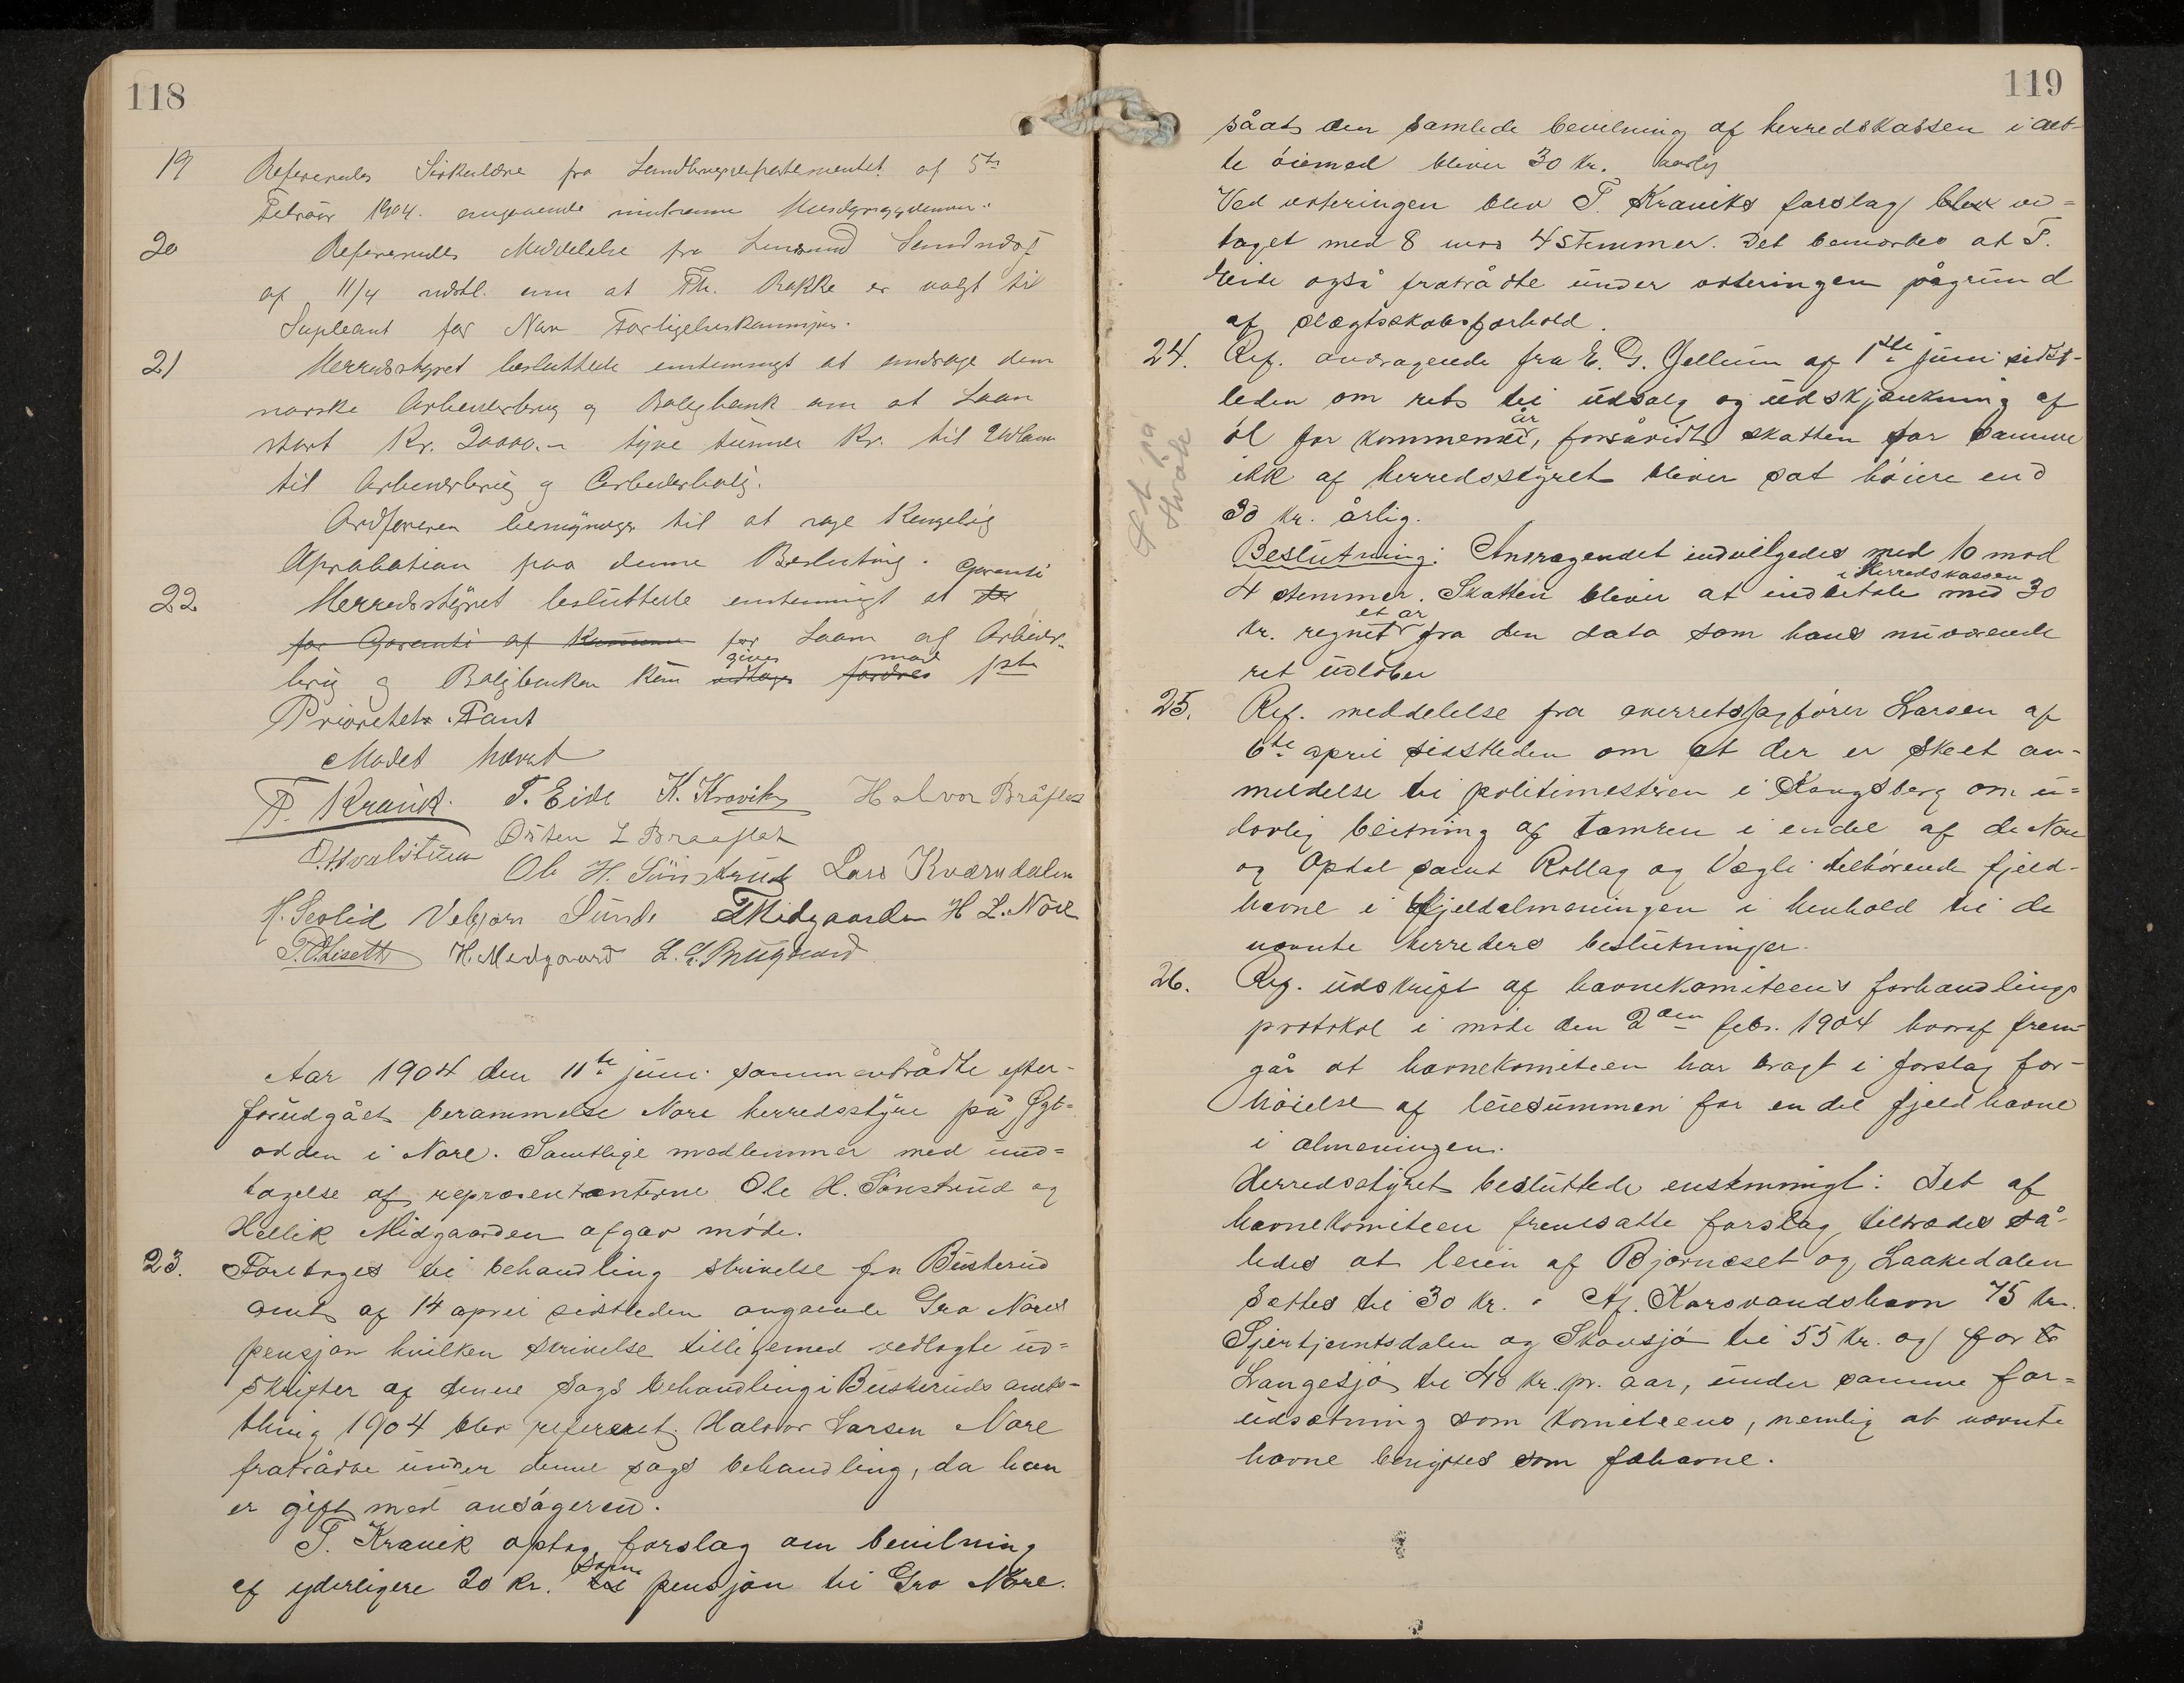 118
19 Refereredes Sirkulære fra Landbrugsdepartementet af 5te
Februar 1904. angaaende
20 Refereredes Meddelelse fra Lensmand
af 11/4 udstl. om at Th. Bakke er valgt til
Supleant for Nore Forligelseskommisjon.
21 Herredsstyret besluttede enstemmigt at andrage den
norske Arbeiderbrug og Boligbank om at Laan
stort Kr. 20000.- tyve tusinde Kr. til Udlaan
til Arbeiderbrug og Arbeiderbolig.
Ordføreren bemyndiges til at søge Kongelig
Aprobation paa denne Beslutning.
22 Herredsstyret besluttede enstemmigt at Garanti
for Garanti af for Laan af Arbeider-
brug og Boligbanken kun gives mod 1ste
Prioritets Pant
Mødet hævet
T. Kravik. T. Eide K. Kravik Halvor Bråflat
O. Hvalstuen Østen L Braaflat
Ole H. Sønstrud Lars Kværndalen
H. Seolid Vebjørn Sunde T Midgaarden H L. Nore
H. Medgaard
Aar 1904 den 11te juni sammentrådte efter-
forudgået berammelse Nore herredsstyre på Sgt-
odden i Nore. Samtlige medlemmer med und=
tagelse af repræsentanterne Ole H. Sønstrud og
Hellik Midgaarden afgav møde.
23. Foretoges til behandling skrivelse fra Buskerud
amt af 14 april sidstleden angaaende Gro Nores
pensjon hvilken skrivelse tilligemed vedlagte ud=
skrifter af denne sags behandling i Buskeruds amts-
thing 1904 blev refereret. Halvor Larsen Nore
fratrådte under denne sags behandling, da han
er gift med ansøgeren.
T. Kravik optog forslag om bevilning
af yderligere 20 kr. som pensjon til Gro Nore.
119
såat den samlede bevilning af herredskassen i det-
te øiemed bliver 30 kr. aarlig
Ved voteringen blev T. Kraviks forslag blev ved=
taget med 8 mod 4 stemmer. Det bemærkes at T.
Eide også fratrådte under voteringen pågrund
af slægtsskabsforhold.
24. Ref. andragende fra E. G. Gellum af 1ste juni sidst-
leden om ret til udsalg og udskjænkning af
øl for kommende år, forsåvidt skatten for samme
ikk af herredsstyret bliver sat høiere end
30 kr. årlig.
Beslutning: Andragendet indvilgedes med 10 mod
4 stemmer. Skatten bliver at indbetale i Herredskassen med 30
kr. regnet et år fra den dato som hans nuværende
ret udløber
25. Ref. meddelelse fra overretssagfører Larsen af
6te april sidstleden om at der er skeet an-
meldelse til politimesteren i Kongsberg om u=
lovlig beitning af tamren i endel af de Nore
og Opdal samt Rollag og Vegli tilhørende fjeld-
havne i fjeldalmeningen i henhold til de
nævnte herreders beslutninger.
26. Ref. udskrift af havnekomiteens forhandlings
protokol i møde den 2den febr. 1904 hvoraf frem-
går at havnekomiteen har bragt i forslag for-
høielse af leiesummen for en del fjeldhavne
i almeningen.
Herredsstyret besluttede enstemmigt: Det af
havnekomiteen fremsatte forslag tiltrædes så-
ledes at leien af Bjørneset og Laakedalen
sættes til 30 kr. Af. Karsvandshavn 75 kr.
Spertjerntsdalen og Skousjø til 55 Kr. og for
Langesjø til 40 kr. pr. aar, under samme for=
udsætning som komiteens, nemlig at nævnte
havne benyttes som fæhavne.